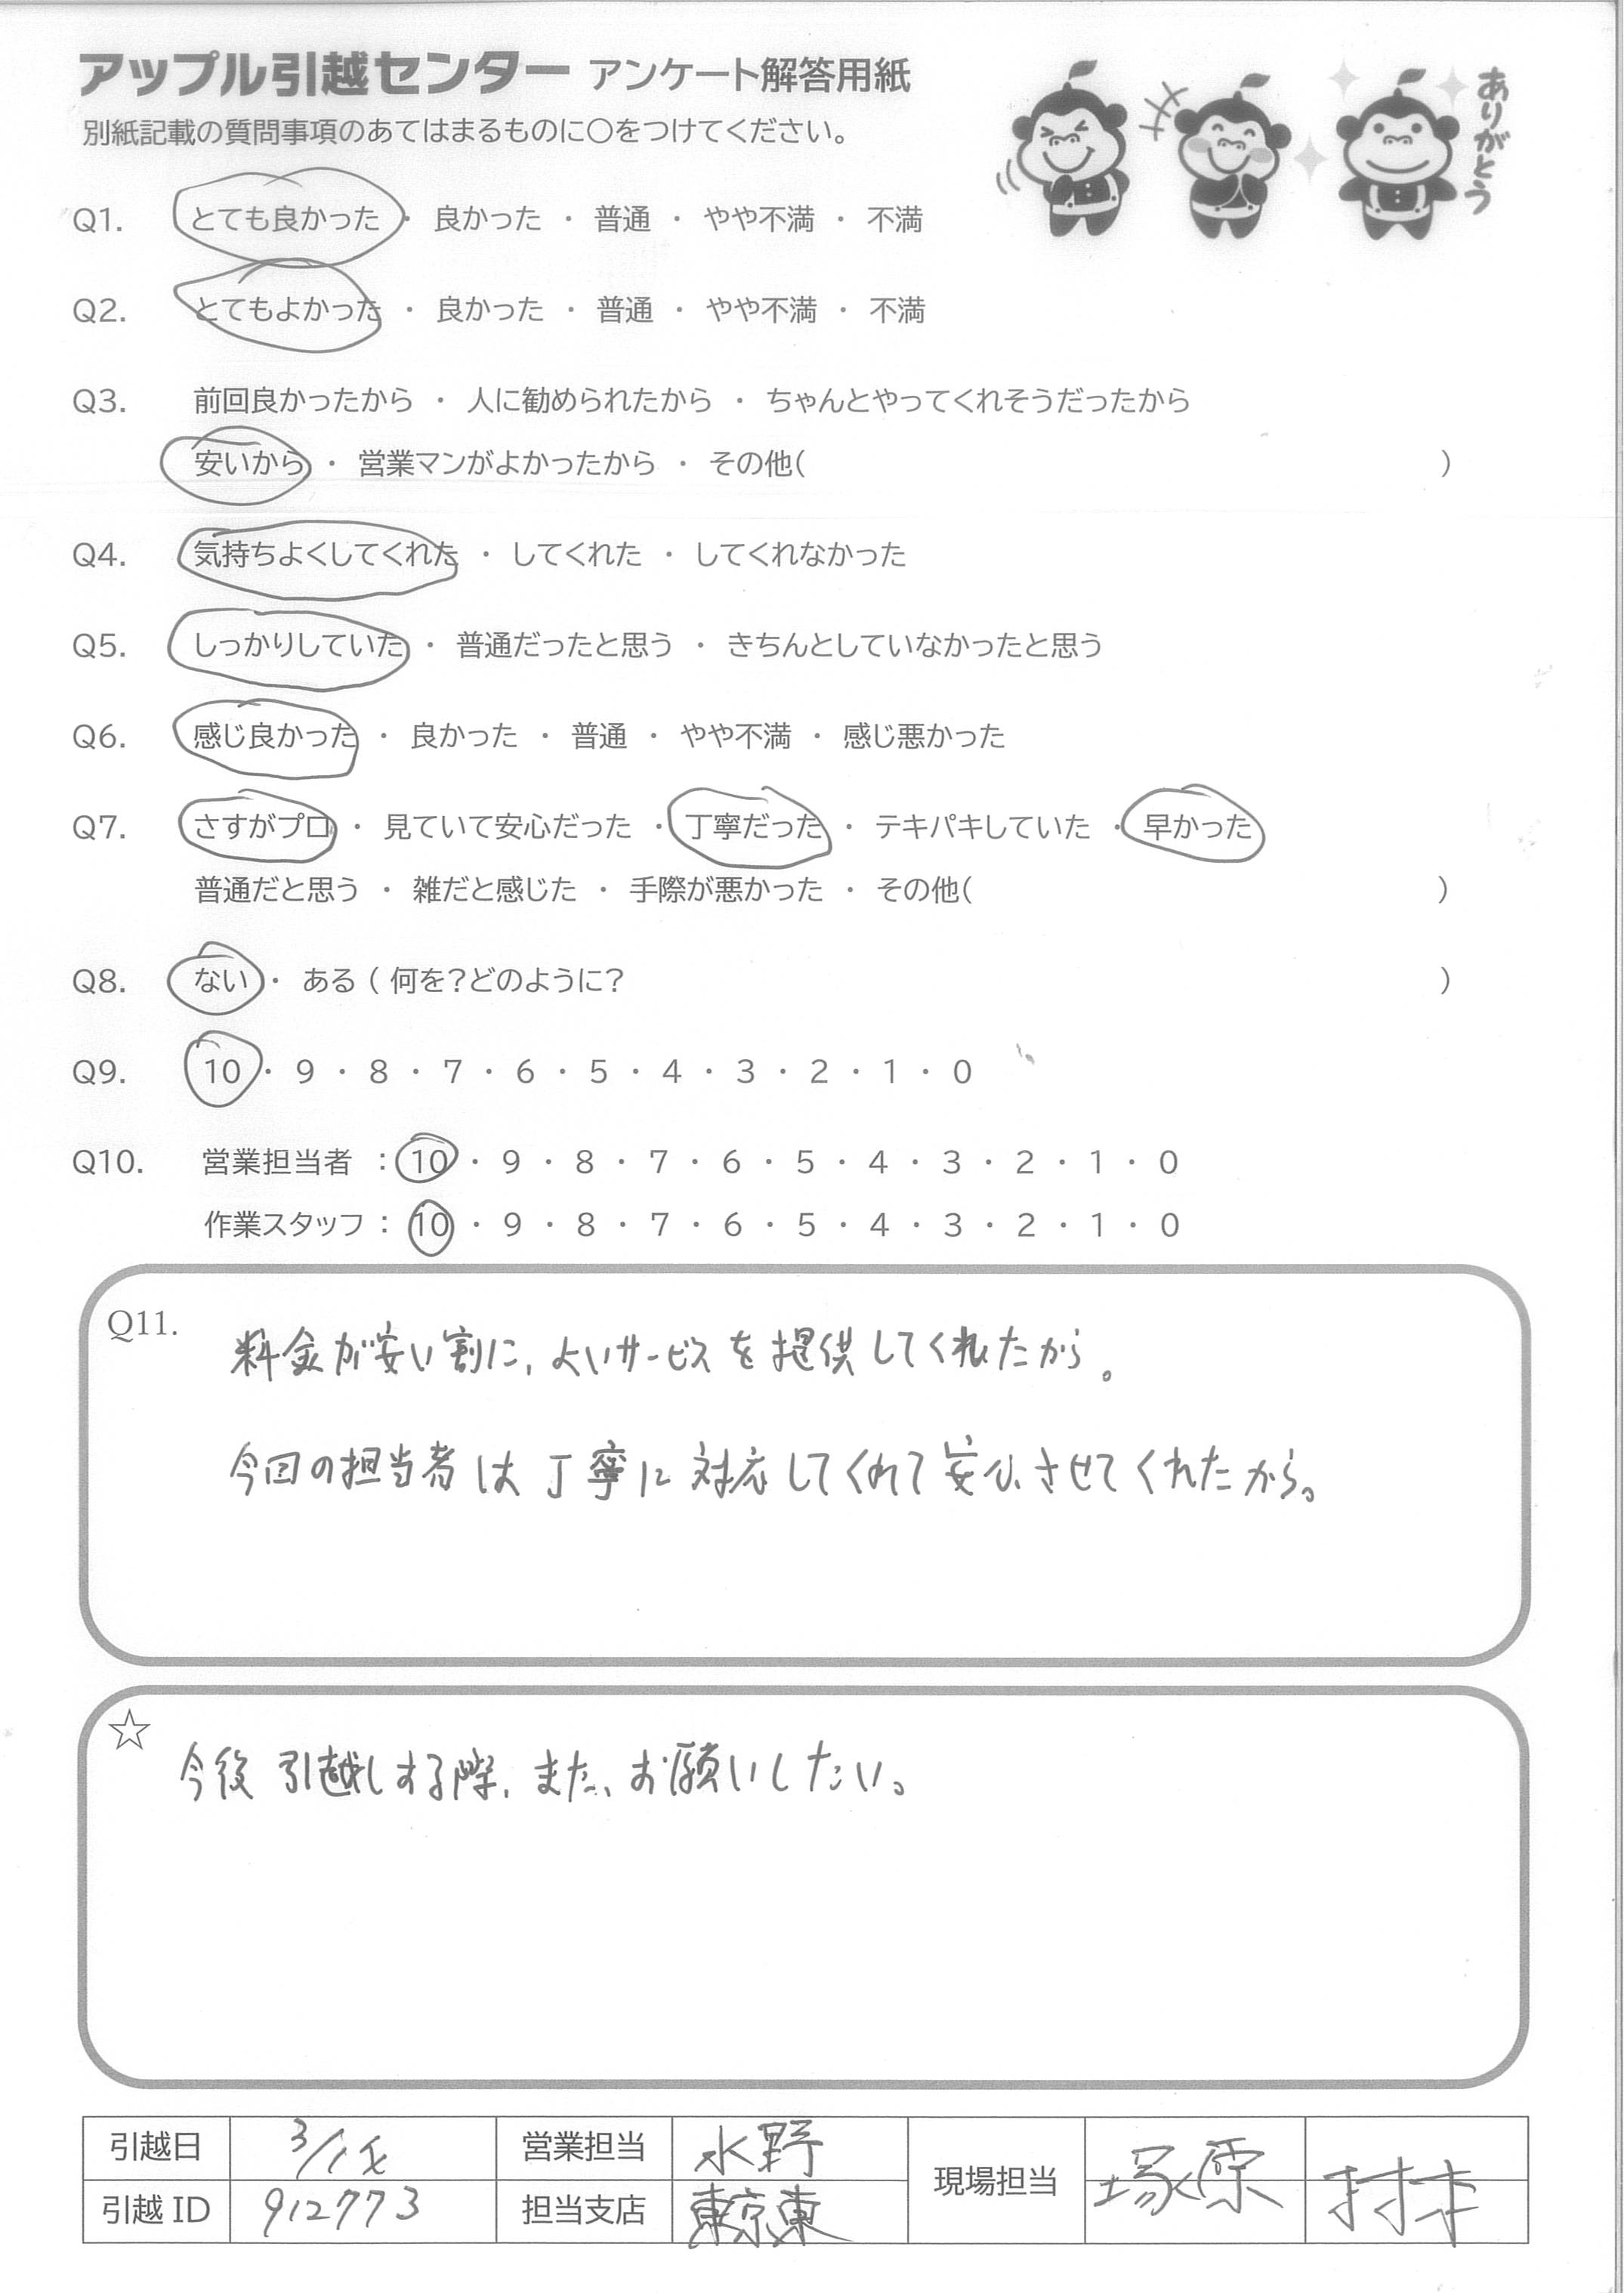 アップル引越センター アンケート解答用紙
別紙記載の質問事項のあてはまるものに○をつけてください。
ありがとう
Q1. とても良かった ・ 良かった ・ 普通 ・ やや不満 ・ 不満
Q2. とてもよかった ・ 良かった ・ 普通 ・ やや不満 ・ 不満
Q3. 前回良かったから ・ 人に勧められたから ・ ちゃんとやってくれそうだったから
安いから ・ 営業マンがよかったから ・ その他( )
Q4. 気持ちよくしてくれた ・ してくれた ・ してくれなかった
Q5. しっかりしていた ・ 普通だったと思う ・ きちんとしていなかったと思う
Q6. 感じ良かった ・ 良かった ・ 普通 ・ やや不満 ・ 感じ悪かった
Q7. さすがプロ ・ 見ていて安心だった ・ 丁寧だった ・ テキパキしていた ・ 早かった
普通だと思う ・ 雑だと感じた ・ 手際が悪かった ・ その他( )
Q8. ない ・ ある ( 何を?どのように? )
Q9. 10 ・ 9 ・ 8 ・ 7 ・ 6 ・ 5 ・ 4 ・ 3 ・ 2 ・ 1 ・ 0
Q10. 営業担当者 : 10 ・ 9 ・ 8 ・ 7 ・ 6 ・ 5 ・ 4 ・ 3 ・ 2 ・ 1 ・ 0
作業スタッフ : 10 ・ 9 ・ 8 ・ 7 ・ 6 ・ 5 ・ 4 ・ 3 ・ 2 ・ 1 ・ 0
Q11. 料金が安い割に、よいサービスを提供してくれたから。
今回の担当者は丁寧に対応してくれて安心させてくれたから。
☆ 今後引越しする際、また、お願いしたい。
引越日 営業担当 水野 現場担当 塚原
引越ID 912773 担当支店 東京東